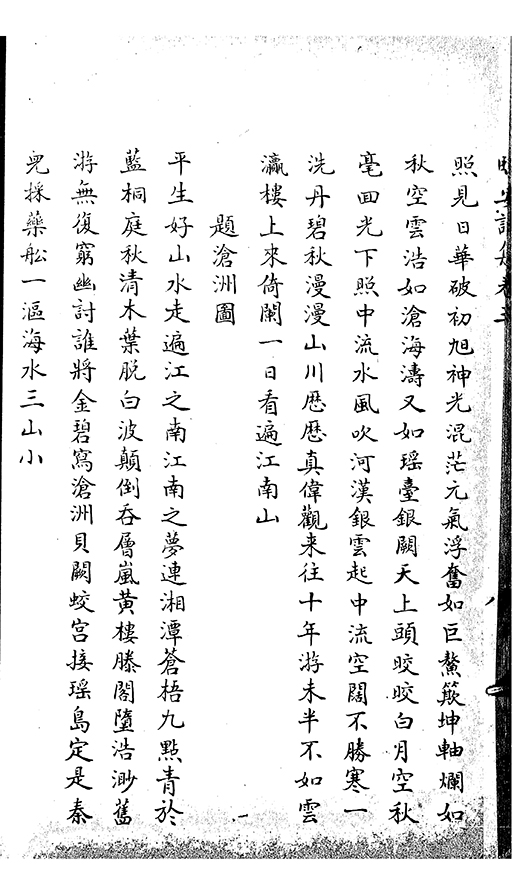 照見日華破初旭神光混茫元氣浮奮如巨鰲簸坤軸爛如
秋空雲浩如滄海濤又如瑶臺銀闕天上頭皎皎白月空秋
毫回光下照中流水風吹河漢銀雲起中流空闊不勝寒一
洗丹碧秋漫漫山川歷歷真偉觀来往十年游未半不如雲
瀛樓上來倚闌一日看遍江南山
題滄洲圖
平生好山水走遍江之南江南之夢連湘潭蒼梧九點青於
藍桐庭秋清木葉脱白波顛倒吞層嵐黄樓滕閣墮浩渺舊
游無復窮幽討誰將金碧寫滄洲貝闕蛟宫接瑶島定是秦
皃採藥舩一漚海水三山小